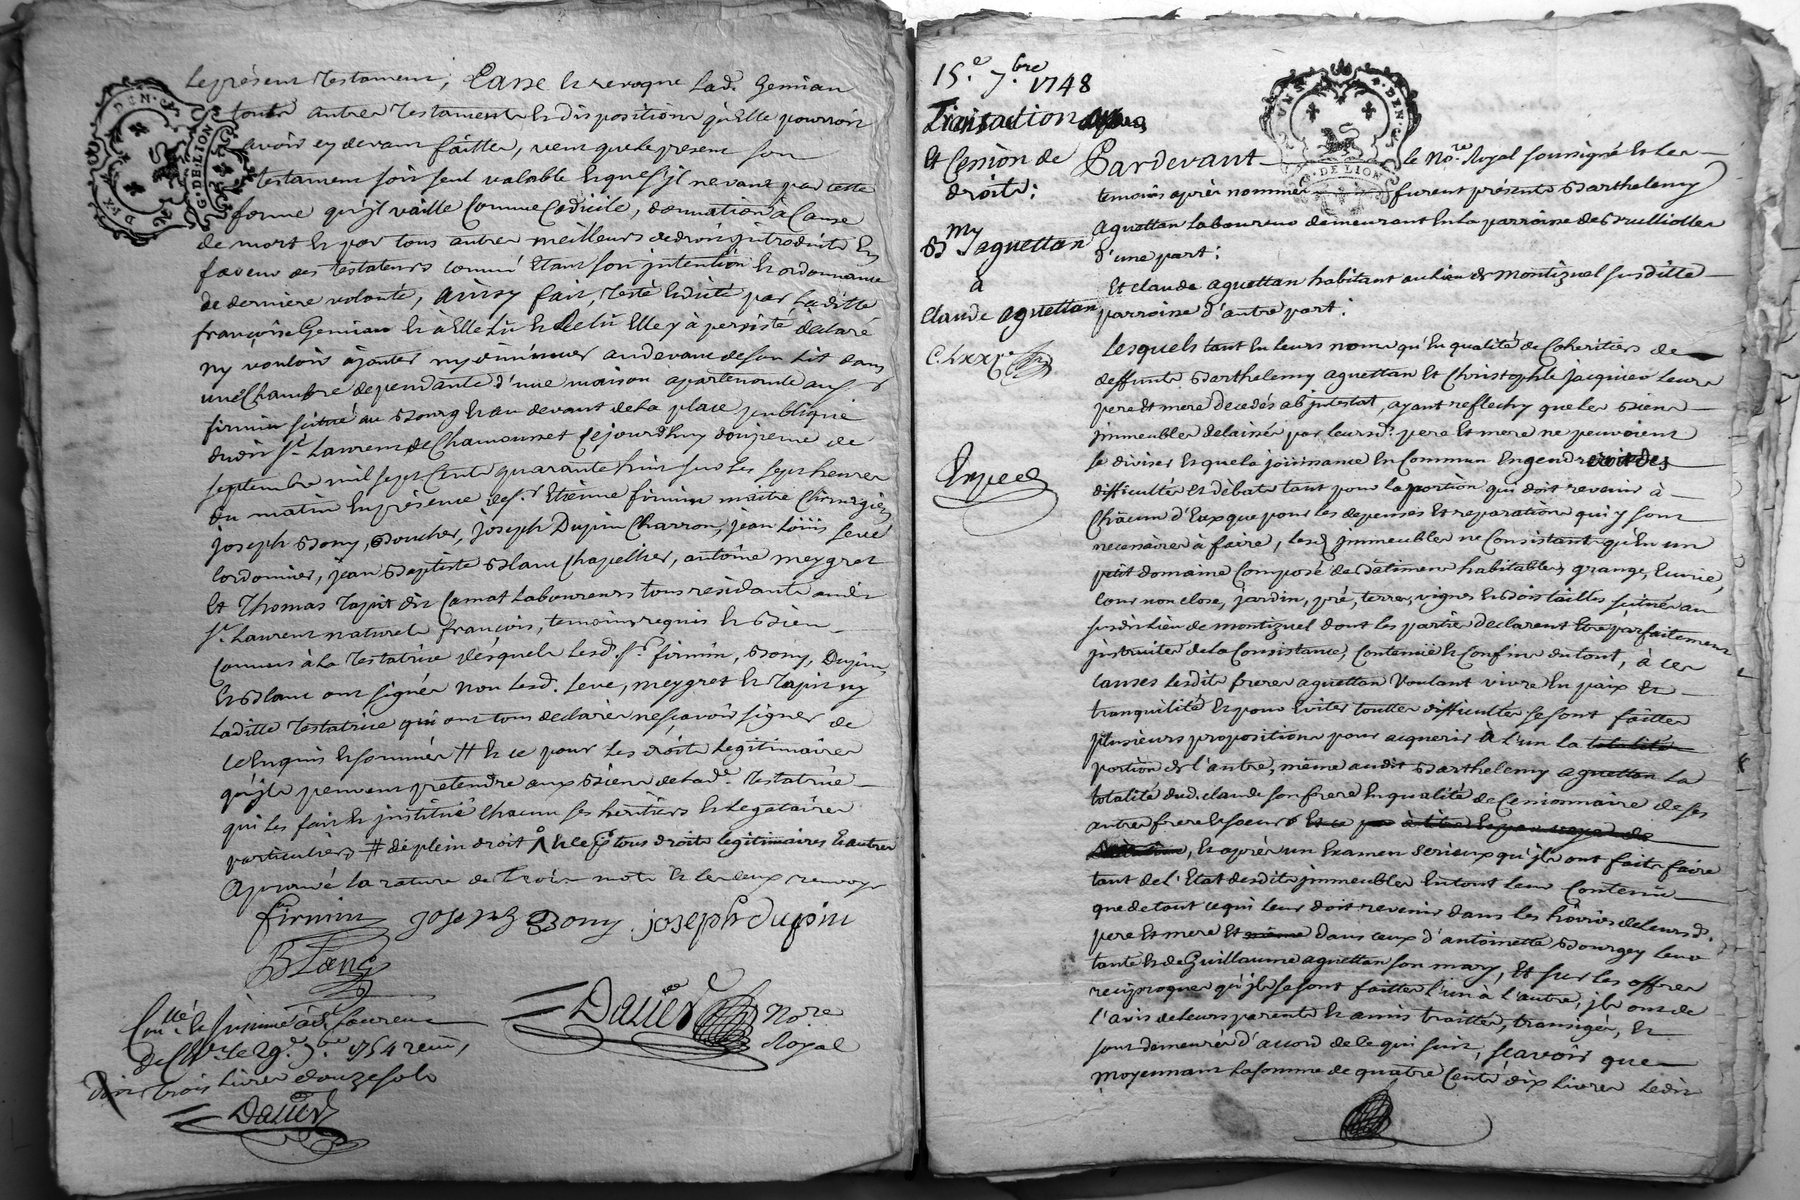 le présent testament, Casse et revoque lad. Gemian
toutes autres testaments et dispositions qu'elle pourroit
avoir cy devant faittes, veut que le present son
testament soit seul valable et que s'jl ne vaut par cette
forme qu'jl vaille Comme Codicile, donnation à Cause
de mort et par tous autres meilleurs de droit jntroduits en
faveur des testateurs comme Etant son jntention et ordonnance
de derniere volonté, ainsy fait, testé et dicté par laditte
françoise Gemian et à Elle lû et relû Elle y à persisté déclaré
ny vouloir ajouter ny diminuer au devant de son lit dans
une Chambre dependante d'une maison apartenante aud. s.r
firmin scituée au Bourg et au devant de la place publique
dudit S.t Laurent de Chamousset cejourd'huy douzieme de
septembre mil sept Cents quarante huit sur les sept heures
du matin En présence des s.r Etienne firmin maitre Chirurgien
joseph Bony, Boucher, joseph Dupin Charron, jean Loüis Levé
Cordonnier, jean Baptiste Blanc Chapellier, antoine meygret
Et Thomas Tapit dit Camat Laboureurs tous résidants audit
S.t Laurent naturels françois, temoins requis et Bien
Connus à la Testatrice desquels lesd. s.r firmin, Bony, Dupin
et Blanc ont signés Non lesd. Levé, meygret et Tapit ny
Laditte Testatrice qui ont tous declarés ne sçavoir signer de
ce Enquis et sommés # et ce pour les droits legitimaires
qu'jls peuvent prétendre aux Biens de lad.e Testatrice
qui les fait et jnstitue chacun ses héritiers et legataires
particuliers # de plein droit tous droits legitimaires et autres
aprouvé la rature de trois mots et les deux renvoys
firmin joseph Bony joseph dupin
Blanc
Daüer No.re
Royal
Con.llé et jnsinué à S.t Laurent
de Ch.t le 29.e 7.bre 1754 reçu
dix trois livres douze sols
Daüer
15.e 7.bre 1748
Transaction
Et Cession de
droits:
B.my aguettan
à
Claude aguettan
Expeé
Pardevant le No.re Royal soussigné et les
temoins après nommés furent présents Barthelemy
aguettan laboureur demeurant En la parroisse de Brulliolles
d'une part:
Et claude aguettan habitant au lieu de Montizuel susditte
parroisse d'autre part:
Lesquels tant en leurs noms qu'En qualité de Cohéritiers de
deffunts Barthelemy aguettan Et Christophle jacquier leurs
pere et mere décedés ab jntestat, ayant reflechy que les Biens
jmmeubles délaissés par leursd. pere Et mere ne peuvoient
se diviser et que la joüissance En Commun Engendreroit des
difficultés et débats tant pour la portion qui doit revenir à
Chacun d'Eux que pour les depenses Et reparations qui y sont
necessaires à faire, lesd. jmmeubles ne Consistant qu'En un
petit domaine Composé de Bâtiments habitables, grange, Ecurie,
Cour non close, jardin, pré, terres, vignes et Bois taillis scitués au
susdit lieu de montizuel dont les parties declarent Etre parfaitement
jnstruites de la Consistance, Contenue et Confins du tout, à ces
causes lesdits freres aguettan Voulant vivre En paix et
tranquilité Et pour Eviter touttes difficultés se sont faittes
plusieurs propositions pour acquerir à l'un la totalité
portion de l'autre, même audit Barthelemy aguettan La
totalité dud. claude son frere En qualité de Cessionnaire de ses
autres freres et soeurs
, et après un Examen serieux qu'jls ont faits faire
tant de l'Etat desdits jmmeubles En tout leur Contenu
que de tout ce qui leur doit revenir dans les hôiries de leursd.
pere et mere Et même dans ceux d'antoinette Bourgey leur
tante et de Guillaume aguettan son mary, Et sur les offres
reciproques qu'jls se sont faittes l'un à l'autre, jls ont de
l'avis de leurs parents et amis traittés, transigés, Et
sont demeurés d'accord de ce qui suit, sçavoir que
moyennant la somme de quatre Cents dix livres ledit